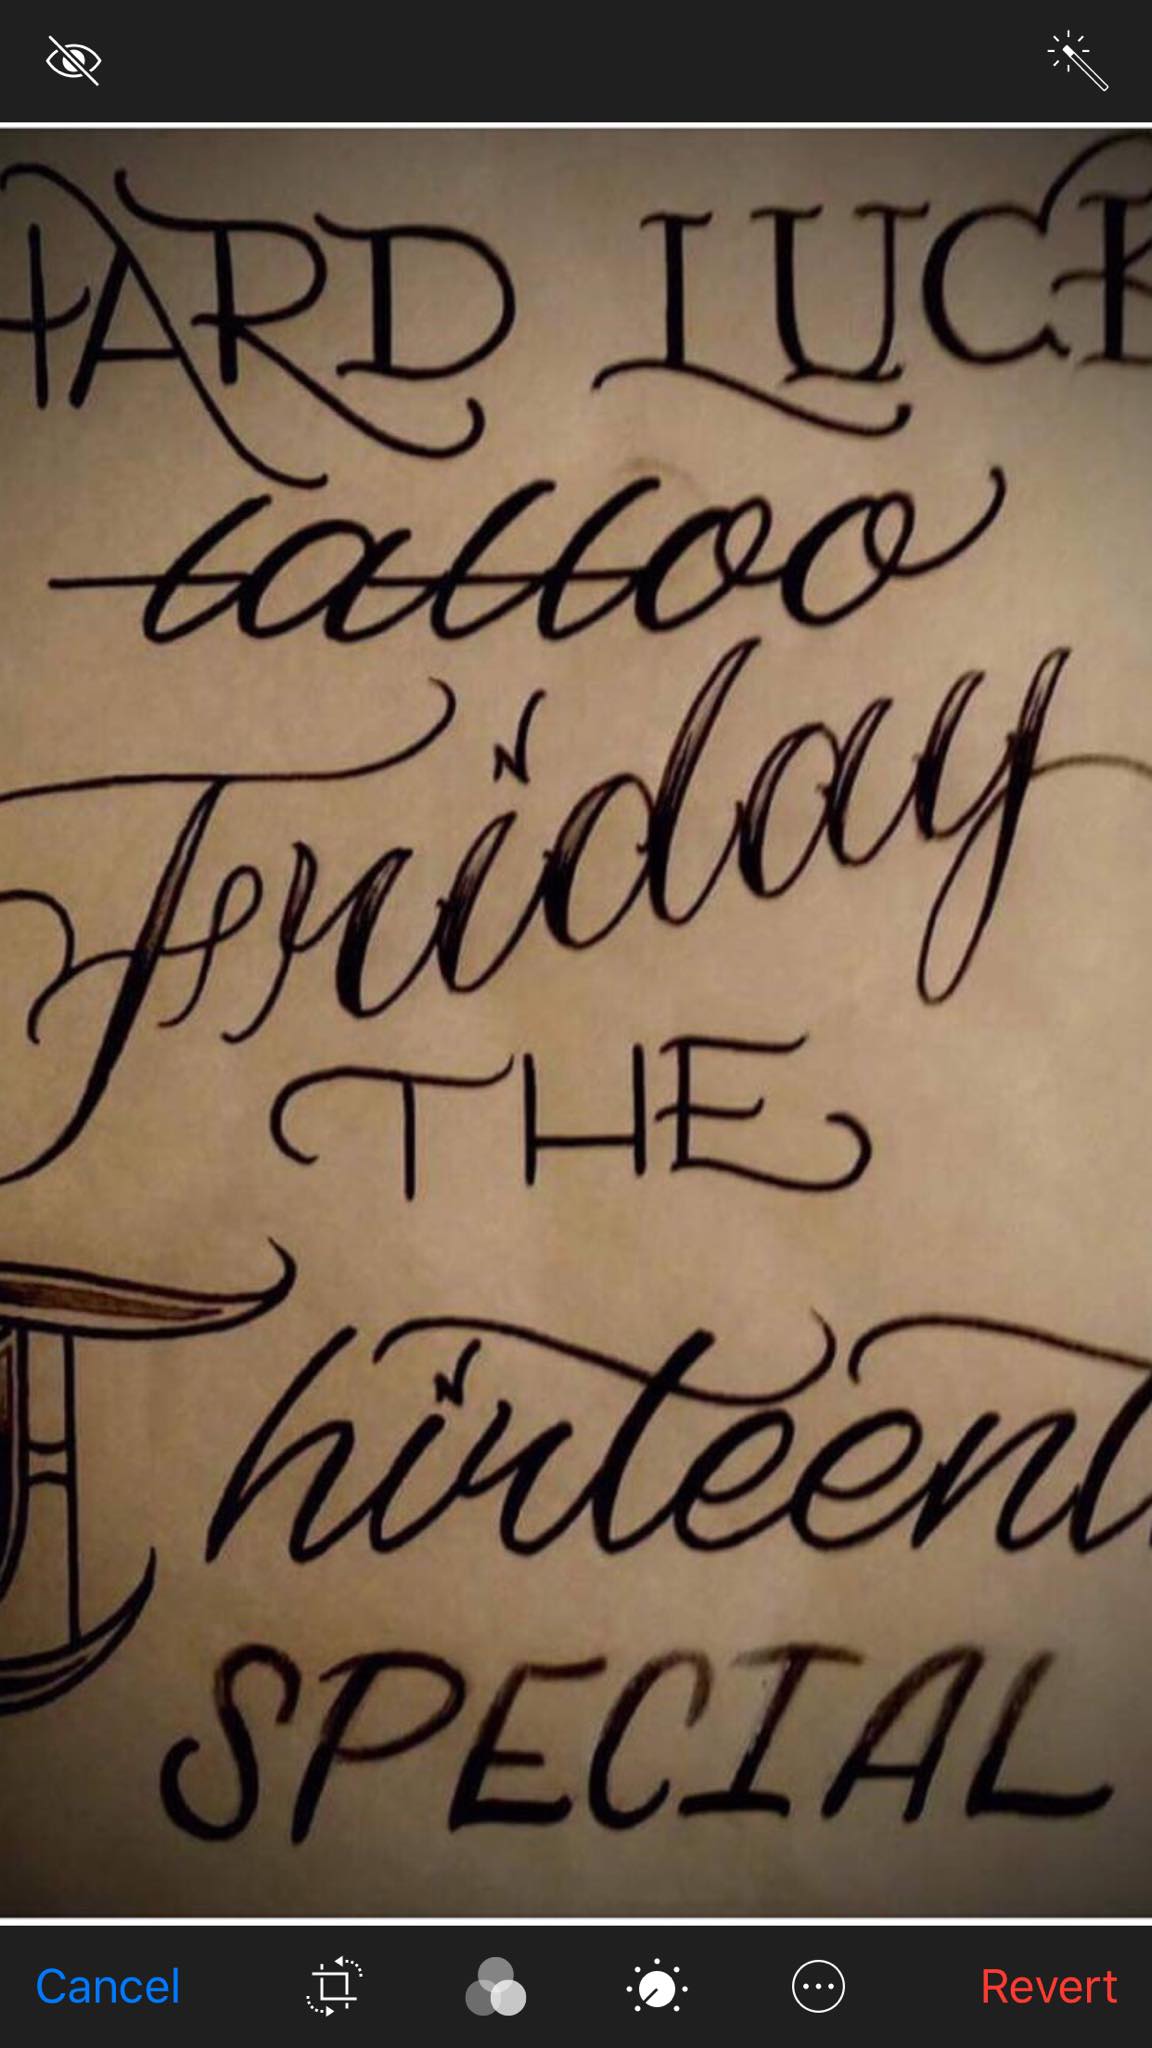 HARD LUCK
tattoo
Friday
THE
Thirteent
SPECIAL
Cancel
Revert